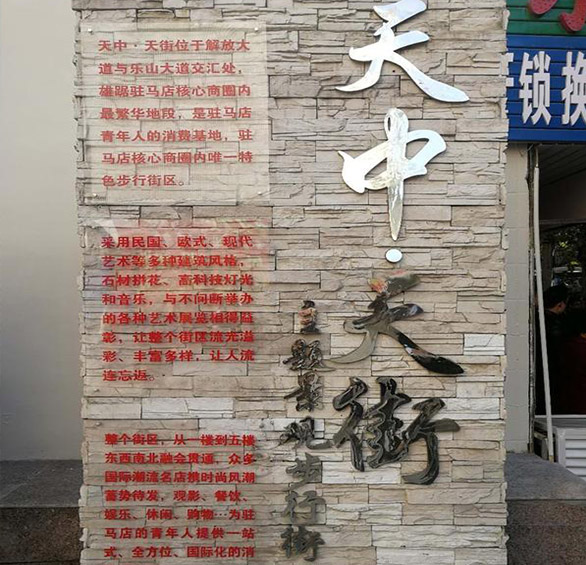 天中·天街
主题景观步行街
天中·天街位于解放大
道与乐山大道交汇处,
雄踞驻马店核心商圈内
最繁华地段，是驻马店
青年人的消费基地，驻
马店核心商圈内唯一特
色步行街区。
采用民国、欧式、现代
艺术等多种建筑风格,
石材拼花、高科技灯光
和音乐，与不间断举办
的各种艺术展览相得益
彰，让整个街区流光溢
彩、丰富多样，让人流
连忘返。
整个街区，从一楼到五楼
东西南北融会贯通，众多
国际潮流名店携时尚风潮
蓄势待发，观影、餐饮、
娱乐、休闲、购物…为驻
马店的青年人提供一站
式、全方位、国际化的消
开锁 换